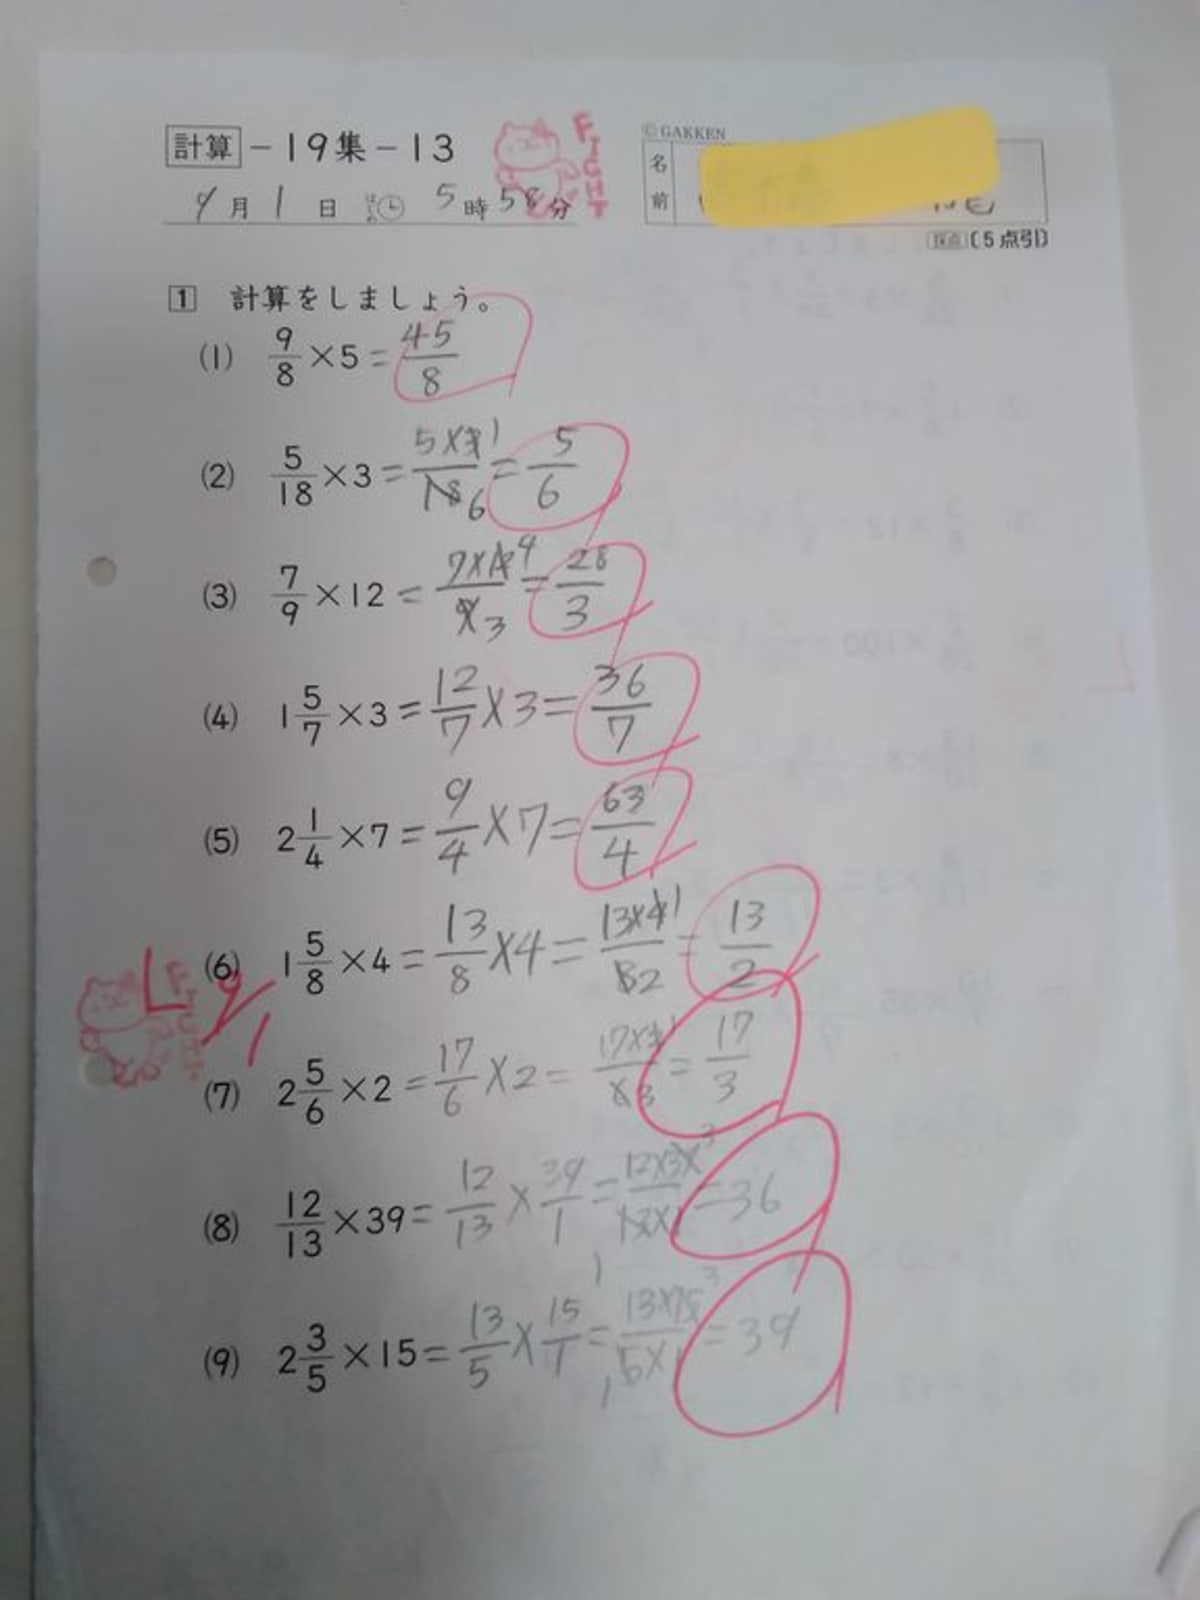 計算-19集-13
FIGHT
© GAKKEN
9月1日 はじめ 5時58分
名前
採点(5点引)
1 計算をしましょう。
(1) 9/8×5=45/8
(2) 5/18×3=5×3 1/18 6=5/6
(3) 7/9×12=7×12 4/9 3=28/3
(4) 1 5/7×3=12/7×3=36/7
(5) 2 1/4×7=9/4×7=63/4
(6) 1 5/8×4=13/8×4=13×4 1/8 2=13/2
FIGHT
L 9/1
(7) 2 5/6×2=17/6×2=17×2 1/6 3=17/3
(8) 12/13×39=12/13×39/1=12×39 3/13×1 1=36
(9) 2 3/5×15=13/5×15/1=13×15 3/5×1 1=39